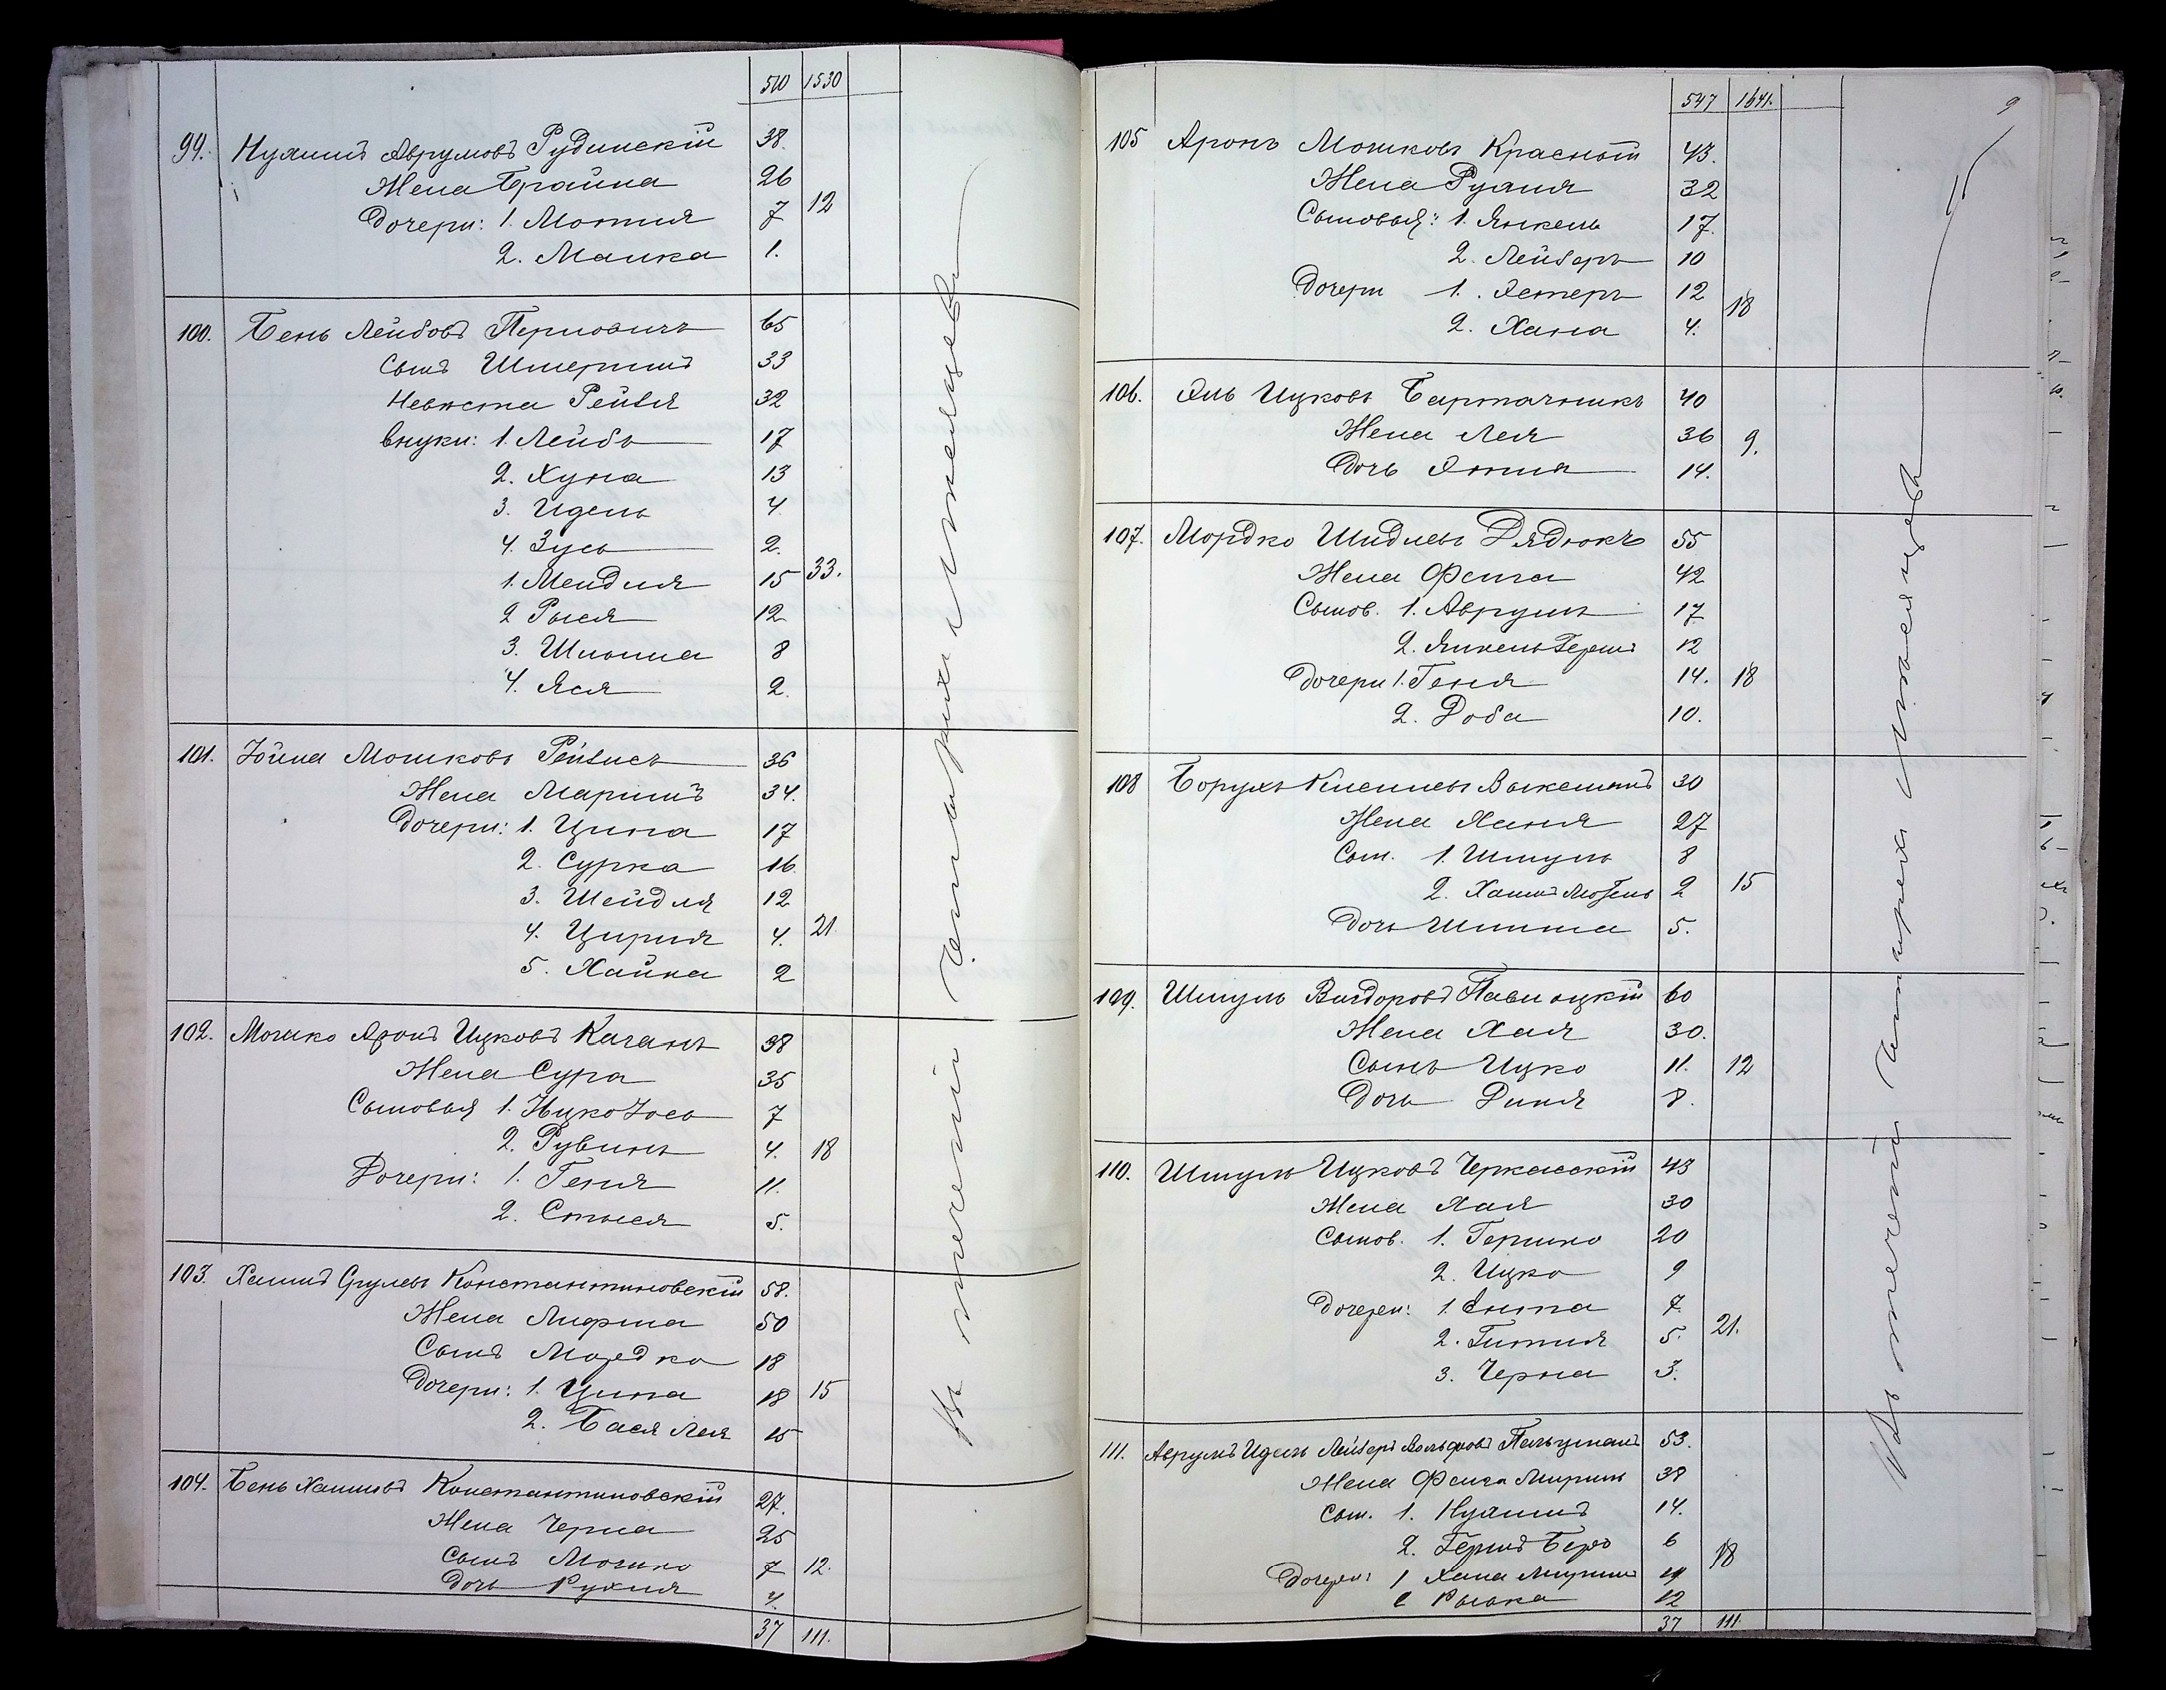 510 1530
99. Нухимъ Аврумовъ Рудинскій 38.
Жена Брайна 26
Дочери: 1. Мотля 7 12
2. Малка 1.
100. Бень Лейбовъ Перловичъ 65
Сынъ Шмерлинъ 33
Невѣстка Рейзля 32
внуки: 1. Лейбъ 17
2. Хуна 13
3. Идель 4
4. Зусь 2.
1. Мендля 15 33.
2 Рыся 12
3. Шльома 8
4. Яся 2.
101. Іойна Мошковъ Рейзисъ 36
Жена Маримъ 34.
Дочери: 1. Ципа 17
2. Сурка 16.
3. Шейдля 12
4. Цирля 4. 21
5. Хайка 2
102. Мошко Аронъ Ицковъ Каганъ 38
Жена Сура 35
Сыновья 1. Ицко Іось 7
2. Рувинъ 4. 18
Дочери: 1. Геня 11.
2. Стыся 5.
103. Хаимъ Срулевъ Константиновскій 58.
Жена Лифша 50
Сынъ Мордко 18
Дочери: 1. Ципа 18 15
2. Бася Лея 15
104. Бень Хаимовъ Константиновскій 27.
Жена Черна 25
Сынъ Мошко 7 12.
Дочь Рухля 4.
37 111.
Въ теченіи четырехъ мѣсяцевъ
547 1641. 9
105 Аронъ Мошковъ Красный 43.
Жена Рухля 32
Сыновья: 1. Янкель 17.
2. Лейзеръ 10
Дочери 1. Эстеръ 12 18
2. Хана 4.
106. Эль Ицковъ Бартачникъ 40
Жена Лея 36 9.
Дочь Этля 14.
107. Мордко Шидлевъ Дядюкъ 55
Жена Фейга 42
Сынов. 1. Аврумъ 17
2. Янкель Гершъ 12
Дочери 1. Геня 14. 18
2. Доба 10.
108 Борухъ Кисилевъ 30
Жена Ханя 27
Сын. 1. Шмуль 8
2. Хаимъ 2 15
Дочь Шипша 5.
109. Шмуль Вигдоровъ Паволоцкій 60
Жена Хая 30.
Сынъ Ицко 11. 12
Дочь Диня 8.
110. Шмуль Ицковъ Черкасскій 43
Жена Хая 30
Сынов. 1. Гершко 20
2. Ицко 9
Дочери: 1. Ента 7. 21.
2. Гитля 5.
3. Черна 3.
111. Аврумъ Идель Лейзеръ Вольфовъ Пельцманъ 53.
Жена Фейга Миримъ 38
Сын. 1. Нухимъ 14.
2. Гершъ Беръ 6 18
Дочери: 1 Хана Миримъ 14
2 Рывка 12
37 111.
Въ теченіи четырехъ мѣсяцевъ